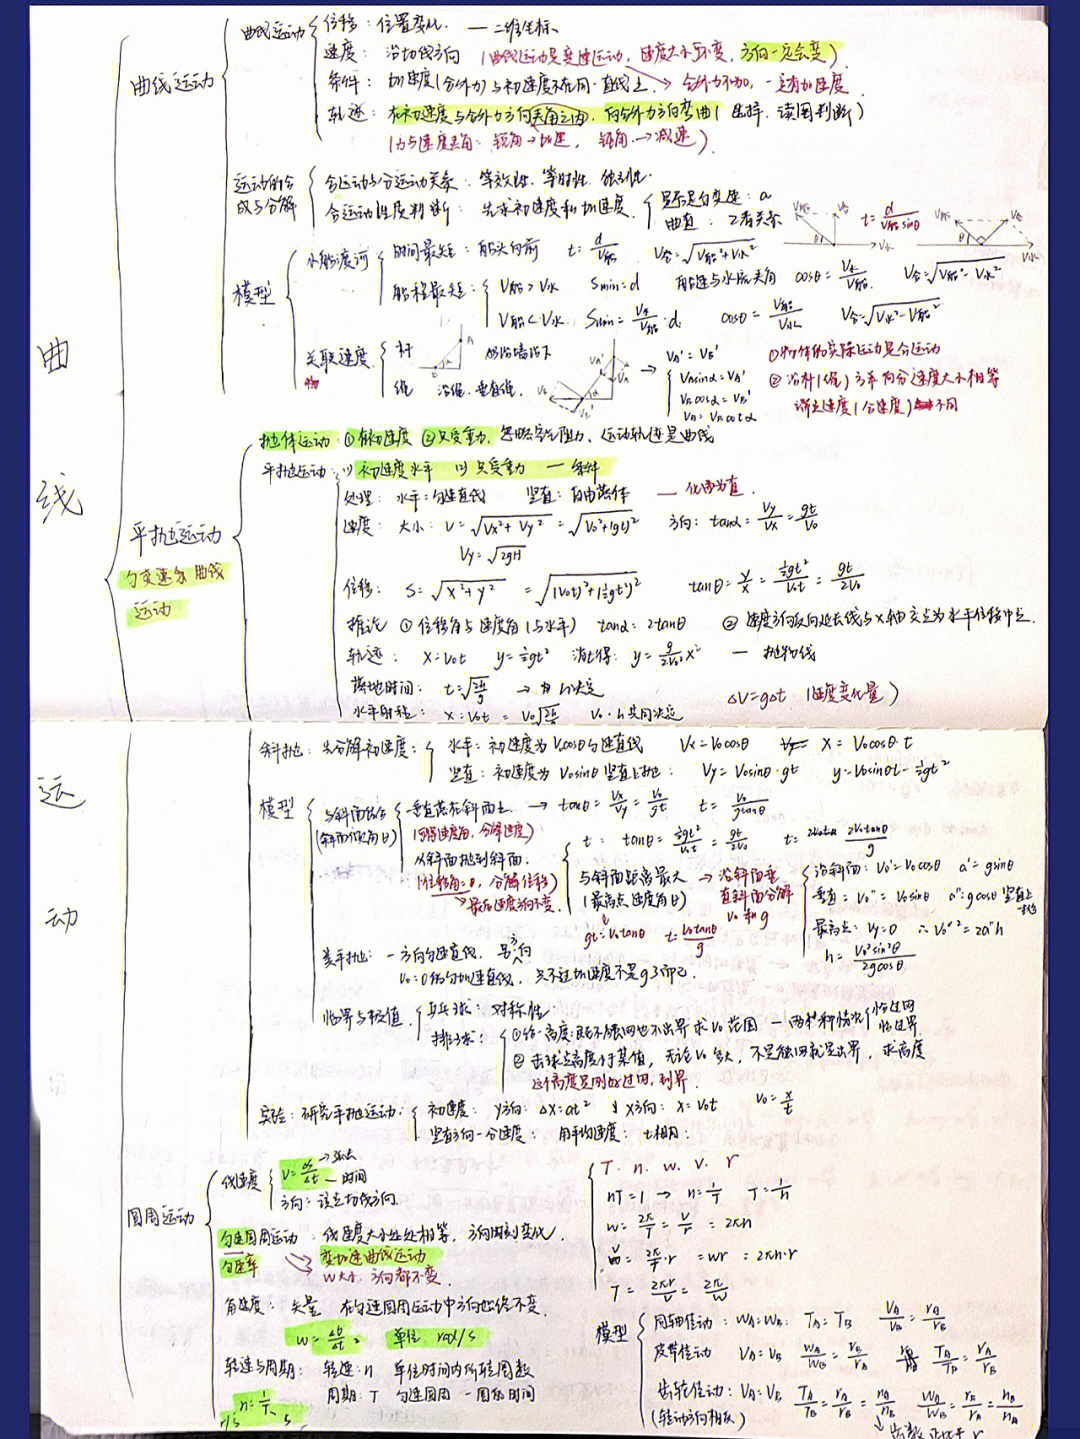 曲线运动
曲线运动
位移：位置变化. — 二维坐标
速度：沿切线方向 (曲线运动是变速运动，速度大小不变，方向一定会变)
条件：加速度(合外力)与初速度不在同一直线上 → 合外力不为0，一定有加速度
轨迹：在初速度与合外力方向夹角之内，向合外力方向弯曲 (选择、读图判断)
(力与速度夹角：锐角→加速，钝角→减速).
运动的合成与分解
合运动与分运动关系：等效性、等时性、独立性.
合运动性质判断：先求初速度和加速度
是否是匀变速：a
曲直：2者关系
t=d/V船sinθ
模型
小船渡河
时间最短：船头向前 t=d/V船 V合=√V船²+V水²
船程最短：
V船>V水 Smin=d 船速与水流夹角 cosθ=V水/V船 V合=√V船²-V水²
V船<V水 Smin=V水/V船·d cosθ=V船/V水 V合=√V水²-V船²
关联速度
杆
绳 沿绳、垂直绳
VA'=VB'
VA sinα=VA'
VB cosα=VB'
VA=VB cotα
①物体的实际运动是合运动
②沿杆(绳)方向的分速度大小相等
端点速度(合速度)不同
曲
线
运
动
抛体运动：①有初速度 ②只受重力，忽略空气阻力、运动轨迹是曲线
平抛运动
匀变速曲线
运动
平抛运动：(1)初速度水平 (2)只受重力 — 条件
处理：水平：匀速直线 竖直：自由落体 — 化曲为直.
速度：大小：V=√Vx²+Vy² = √V0²+(gt)² 方向：tanα=Vy/Vx=gt/V0
Vy=√2gH
位移：S=√x²+y² = √(V0t)²+(½gt²)² tanθ=y/x=½gt²/V0t=gt/2V0
推论 ①位移角与速度角(与水平) tanα=2tanθ ②速度方向反向延长线与x轴交点为水平位移中点.
轨迹：x=V0t y=½gt² 消t得：y=g/2V0² x² — 抛物线
落地时间：t=√2h/g → 由h决定 ΔV=gΔt (速度变化量)
水平射程：x=V0t=V0√2h/g V0、h共同决定
斜抛：先分解初速度：
水平：初速度为V0cosθ匀速直线 Vx=V0cosθ x=V0cosθ·t
竖直：初速度为V0sinθ竖直上抛：Vy=V0sinθ-gt y=V0sinθt-½gt²
模型
与斜面结合
(斜面倾角θ)
垂直落在斜面上 → tanθ=Vx/Vy=V0/gt t=V0/gtanθ
(知速度角，分解速度)
从斜面抛到斜面：
(位移角=θ，分解位移)
→最后速度方向不变.
t：tanθ=½gt²/V0t=gt/2V0 t=2V0tanθ/g
与斜面距离最大
(最高点、速度角θ)
gt=V0tanθ t=V0tanθ/g
→沿斜面垂
直斜面分解
V0和g
沿斜面：V0'=V0cosθ a'=gsinθ
垂直：V0''=V0sinθ a''=gcosθ 竖直上抛
最高点：Vy=0 ∴V0''²=2a''h
h=V0²sin²θ/2gcosθ
类平抛：一方向匀速直线，另一方向
V0=0的匀加速直线，只不过加速度不是g了而已.
临界与极值
乒乓球：对称性
排球：
①给一高度：既不触网也不出界求V0范围 — 两种情况
恰过网
恰过界
②击球点高度为某值，无论V0多大，不是触网就是出界，求高度
这个高度是刚好过网，到界.
实验：研究平抛运动：
初速度：y方向：Δx=at² x方向：x=V0t V0=x/t
竖直方向一分速度：用平均速度：t相同.
圆周运动
线速度
V=Δs/Δt →弧长 —时间
方向：该点切线方向.
匀速圆周运动：线速度大小处处相等，方向时刻变化.
匀速率
变加速曲线运动
w大小、方向都不变.
角速度：矢量 在匀速圆周运动中方向始终不变.
w=Δθ/Δt 单位 rad/s
转速与周期：转速：n 单位时间内所转圈数
周期：T 匀速圆周 一周的时间
n=1/T
r/s s
T、n、w、v、r
nT=1 → n=1/T T=1/n
w=2π/T=V/r=2πn
V=2π/T·r =wr =2πn·r
T=2πr/V=2π/w
模型
同轴传动：wA=wB. TA=TB VA/VB=rA/rB
皮带传动 VA=VB wA/wB=rB/rA TA/TB=rA/rB
齿轮传动：VA=VB TA/TB=rA/rB=nA/nB wA/wB=rB/rA=nB/nA
(转动方向相反)
↓齿数正比于r